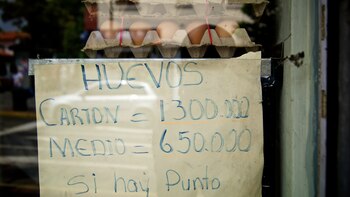 HUEVOS
CARTON = 1300.000
MEDIO = 650.000
Si hay Punto